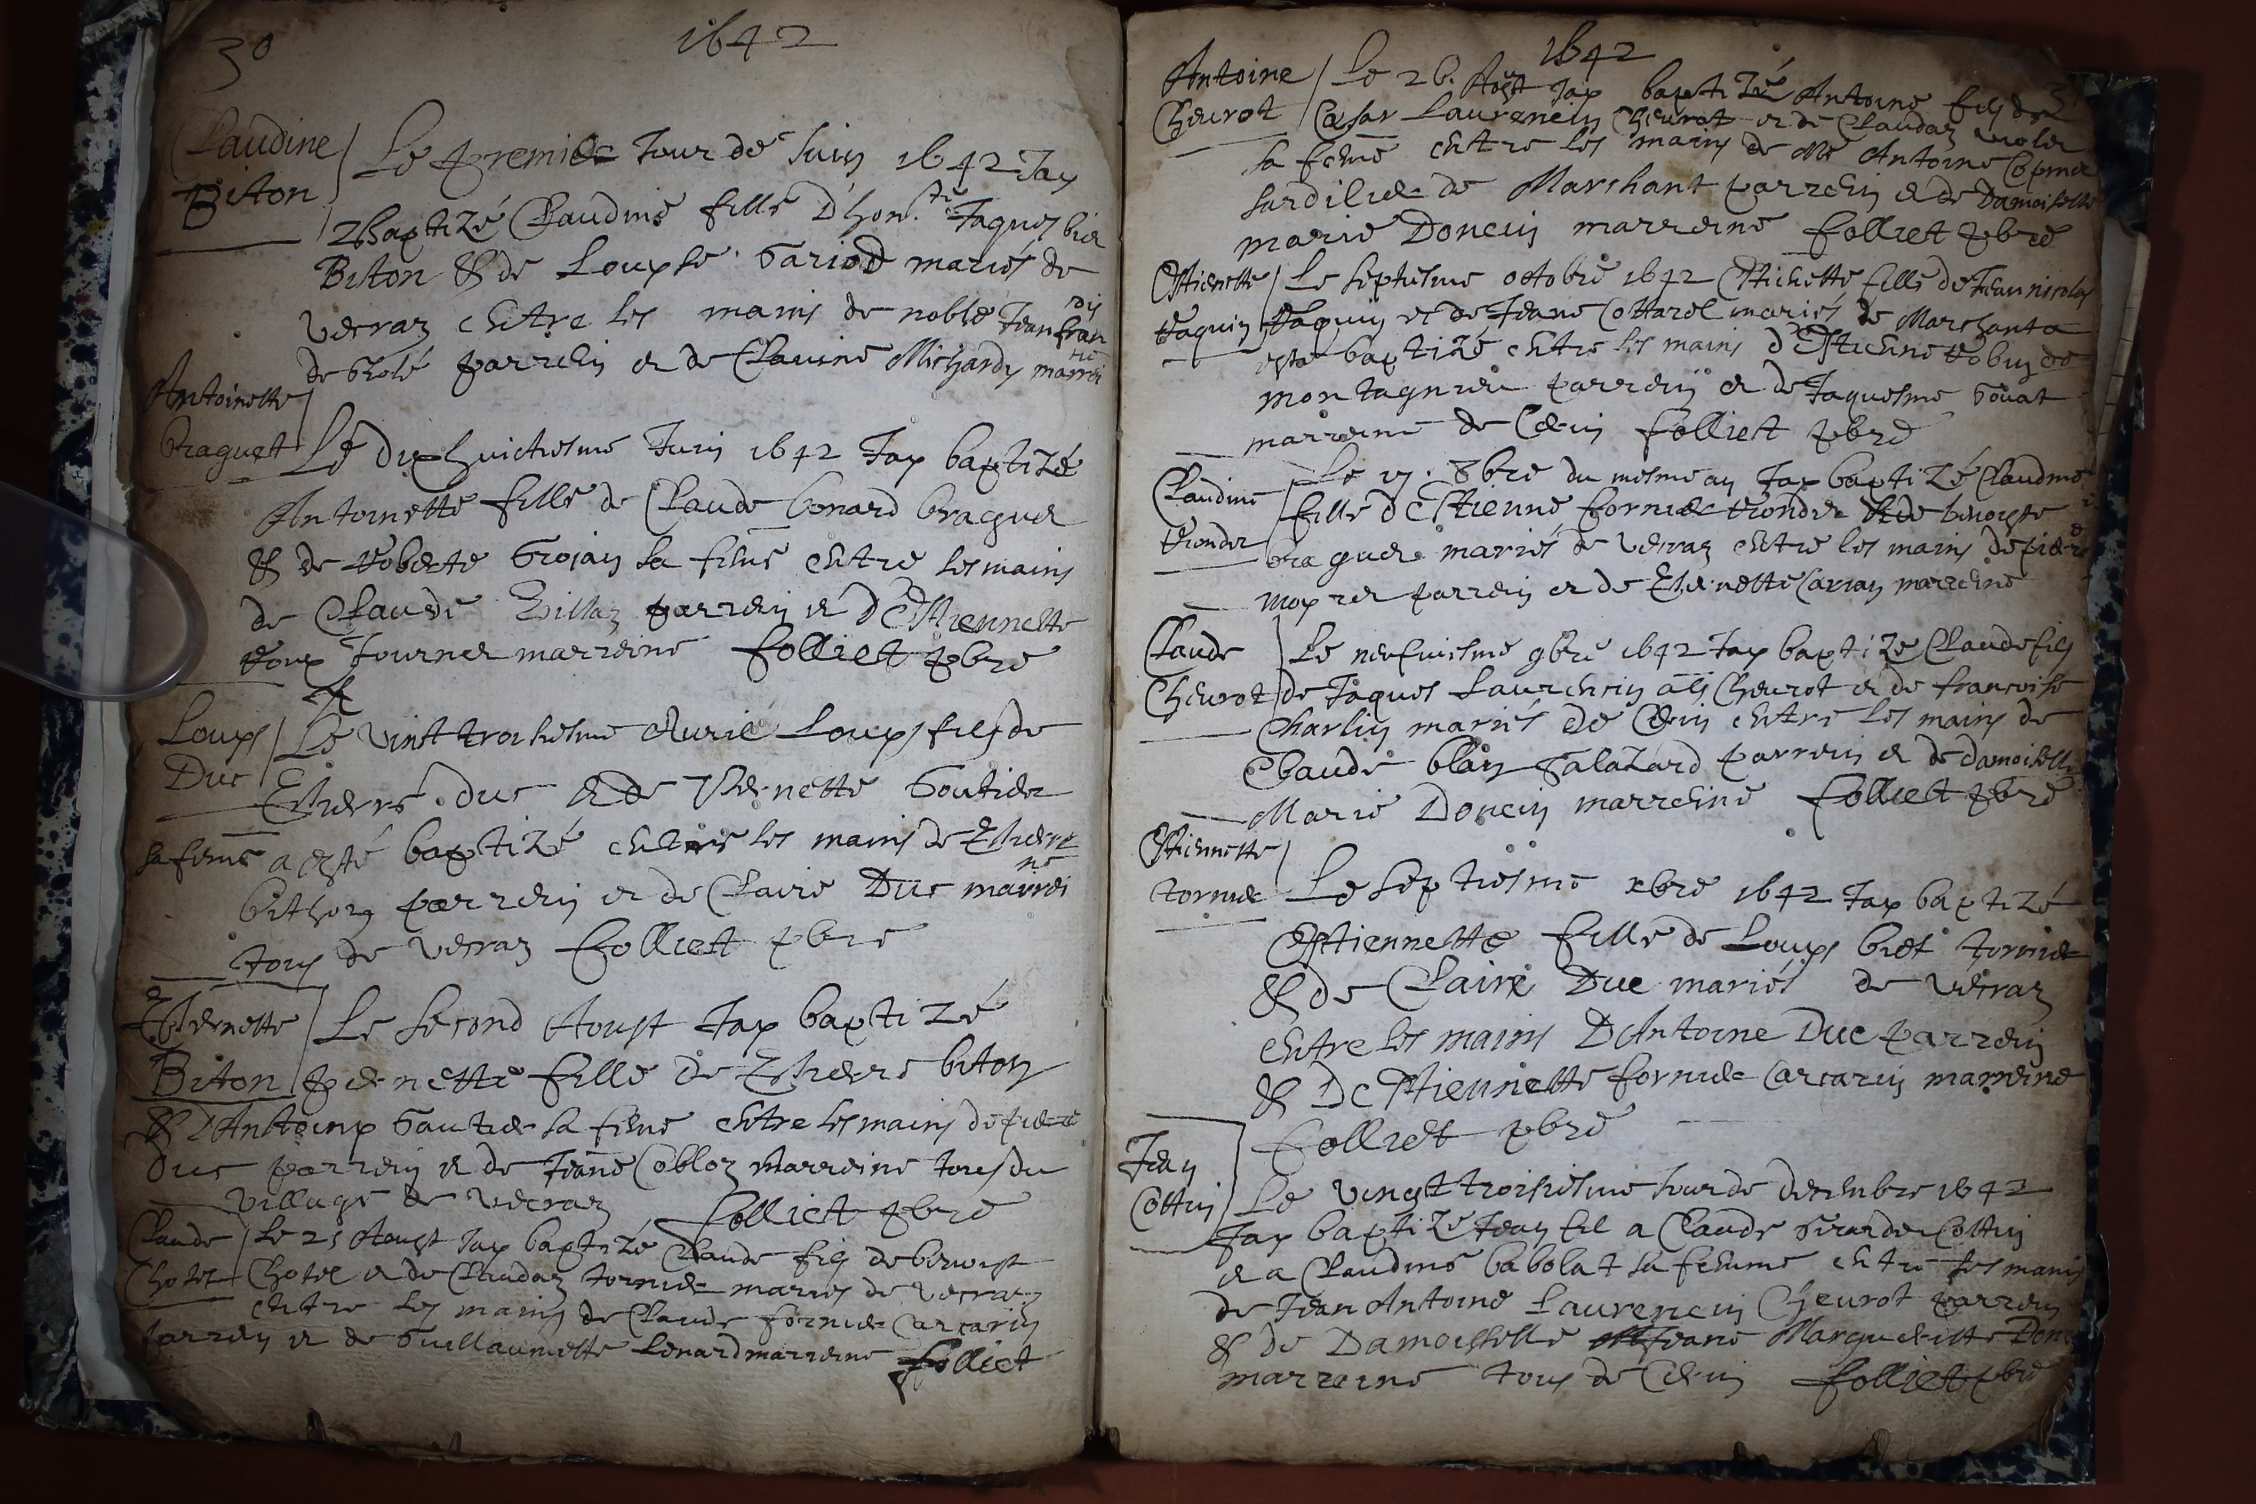 30
1642
Claudine
Biton
Le premier Jour de Juin 1642 Jay
Baptizé Claudine fille d'hon.te Jaques
Biton & de Loupse Gariod mariés de
vecraz entre les mains de noble Jean fran
de parrein et de Clauine Michardz marrei
Antoinette
braguet
Le dixhuictiesme Juin 1642 Jay baptizé
Antoinette fille de Claude bonard braguer
& de Roberte Grojan sa feme entre les mains
de Claude parrein et d'Estiennette
Roux Fournier marreine Folliet pbre
Loups
Duc
Le vint troisiesme Auril Loups fils de
duc et de Pernette Gautier
sa feme a esté baptizé entre les mains de
parrein et de Claire Duc marrei
ne
tous de vecraz Folliet pbre
Pernette
Biton
Le second Aoust Jay baptizé
pernette fille de Pierre biton
& d'Antoine Gautier sa feme entre les mains de piere
duc parrein et de Jeane Cobloz marreine tous du
village de vecraz Folliet pbre
Claude
Chotel
Le 25 Aoust Jay baptizé Claude fils de benoist
Chotel et de Claudaz fornier mariés de vecraz
entre les mains de Claude fornier Carcarin
parrein et de Guillaumette Lenard marreine Folliet
1642
Antoine
Cheurot
Le 26. Aoust Jay baptizé Antoine fils de
Cæsar Laurencin Cheurot et de Claudaz
sa feme entre les mains de Me Antoine
de Marchant parrein et de Damoiselle
marie Doncin marreine Folliet pbre
Estienette
Raquin
Le septiesme octobre 1642 Estienette fille de Jean nicolas
Raquin et de Jeane Cottarel mariés de Marchant a
esté baptizé entre les mains d'Estienne Robin de
montagnieu parrein et de Jaquesme Gouat
marreine de Cuin Folliet pbre
Claudine
Le 17. 8bre du mesme an Jay baptizé Claudine
fille d'Estienne fornier et de benoiste
braguer mariés de vecraz entre les mains de piere
parrein et de Pernette Carran marreine
Claude
Cheurot
Le neufuiesme 9bre 1642 Jay baptizé Claude fils
de Jaques Laurencin als Cheurot et de francoise
Charlin mariés de Cuin entre les mains de
Claude blanc Galatard parrein et de damoiselle
Marie Doncin marreine Folliet pbre
Estiennette
fornier
Le septiesme xbre 1642 Jay baptizé
Estiennette fille de Loups fornier
& de Claire Duc mariés de vecraz
entre les mains D'Antoine Duc parrein
& D'Estiennette fornier Carcarin marreine
Folliet pbre
Jean
Cottin
Le vingt troisiesme Jour de decembre 1642
Jay baptizé Jean fil a Claude Girarde Cottin
et a Claudine babolat sa femme entre les mains
de Jean Antoine Laurencin Cheurot parrein
& de Damoiselle Jeane Marguerite
marreine tous de Cuin Folliet pbre